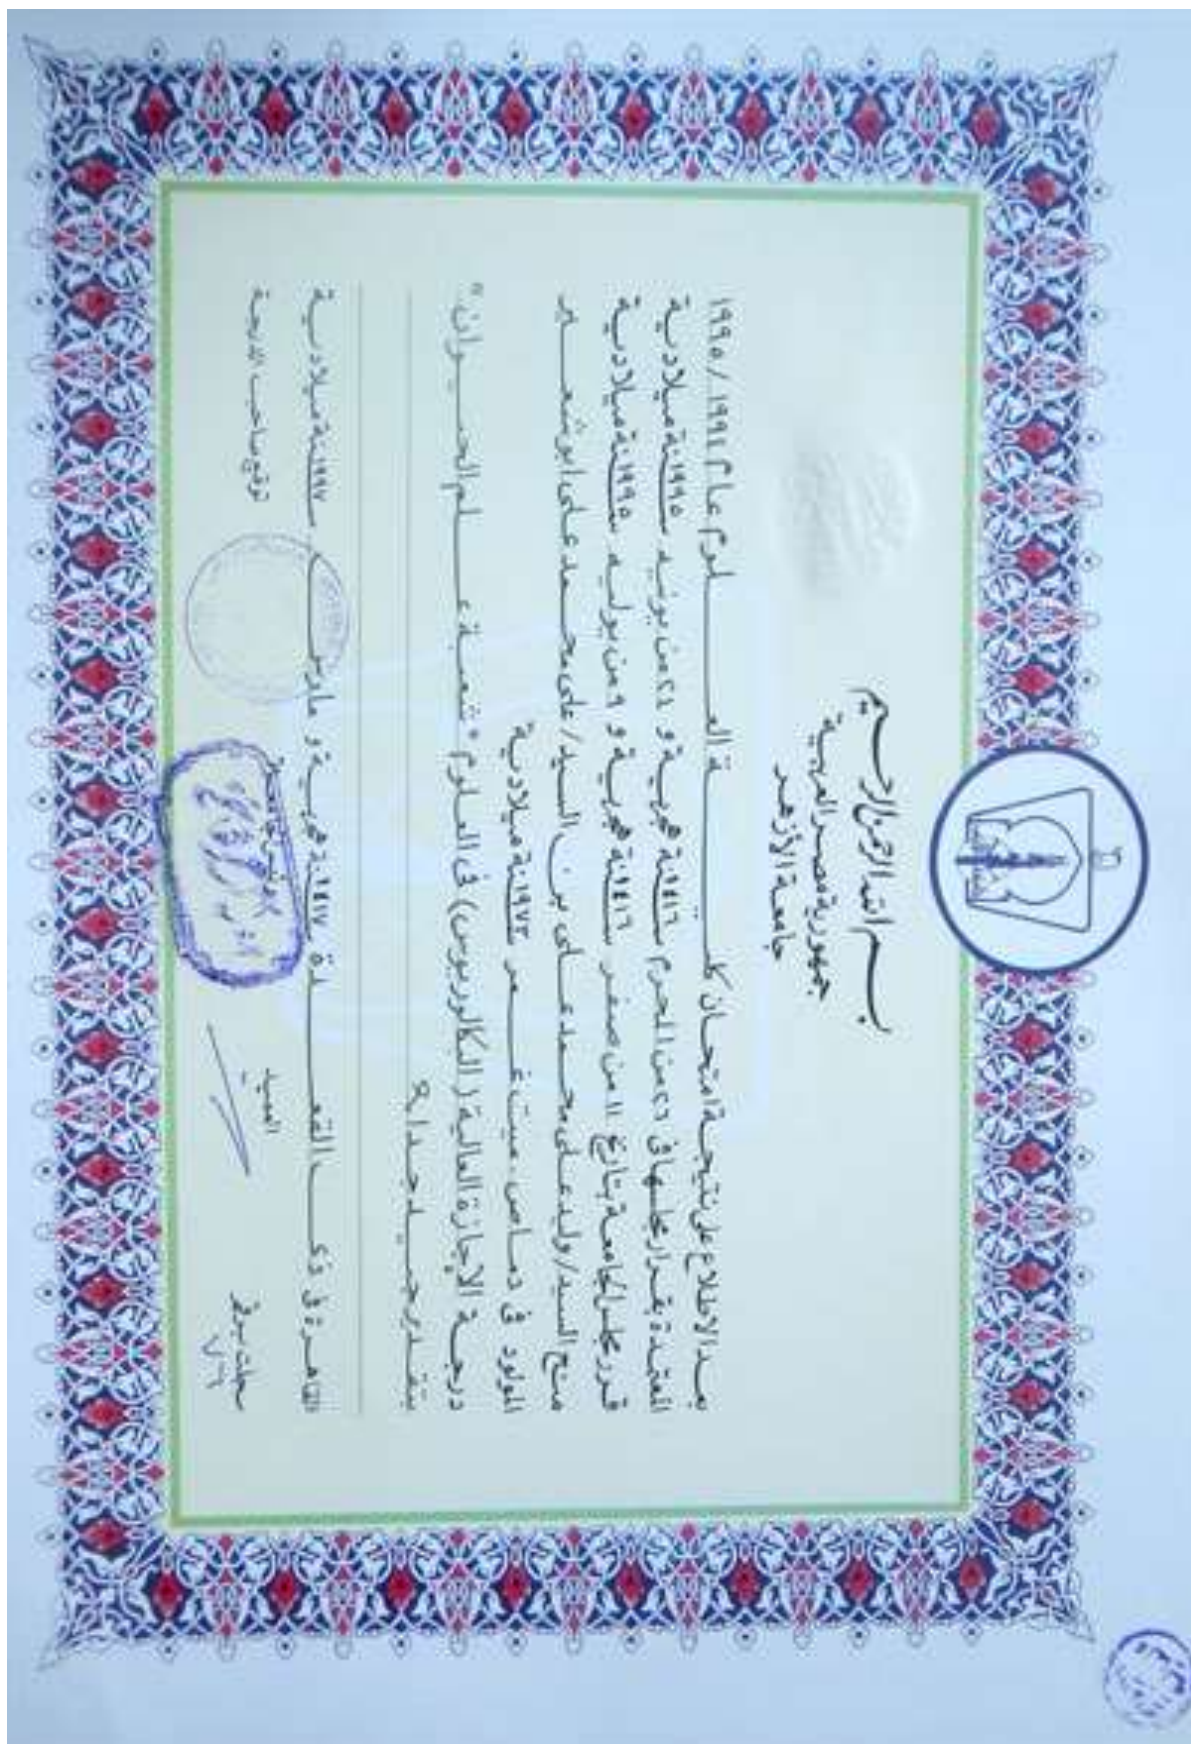 بسم الله الرحمن الرحيم
جمهورية مصر العربية
جامعة الأزهر
بعد الاطلاع على نتيجة امتحان كلية العلوم عام ١٩٩٤/١٩٩٥
المعتمدة بقرار مجلسها فى ٢٦ من المحرم سنة ١٤١٦ هجرية و ٢٤ من يونيه سنة ١٩٩٥ ميلادية
قرر مجلس الجامعة بتاريخ ١١ من صفر سنة ١٤١٦ هجرية و ٩ من يوليه سنة ١٩٩٥ ميلادية
منح السيد/ وليد على محمد على بن السيد/ على محمد على ابوشعير
المولود فى دماص. ميت غمر سنة ١٩٧٣ ميلادية
درجة الإجازة العالية (البكالوريوس) فى العلوم "شعبة علم الحيوان"
بتقدير جيد جدا
القاهرة فى ذى القعدة سنة ١٤١٧ هجرية و مارس سنة ١٩٩٧ ميلادية
سجلت برقم العميد توقيع صاحب الدرجة